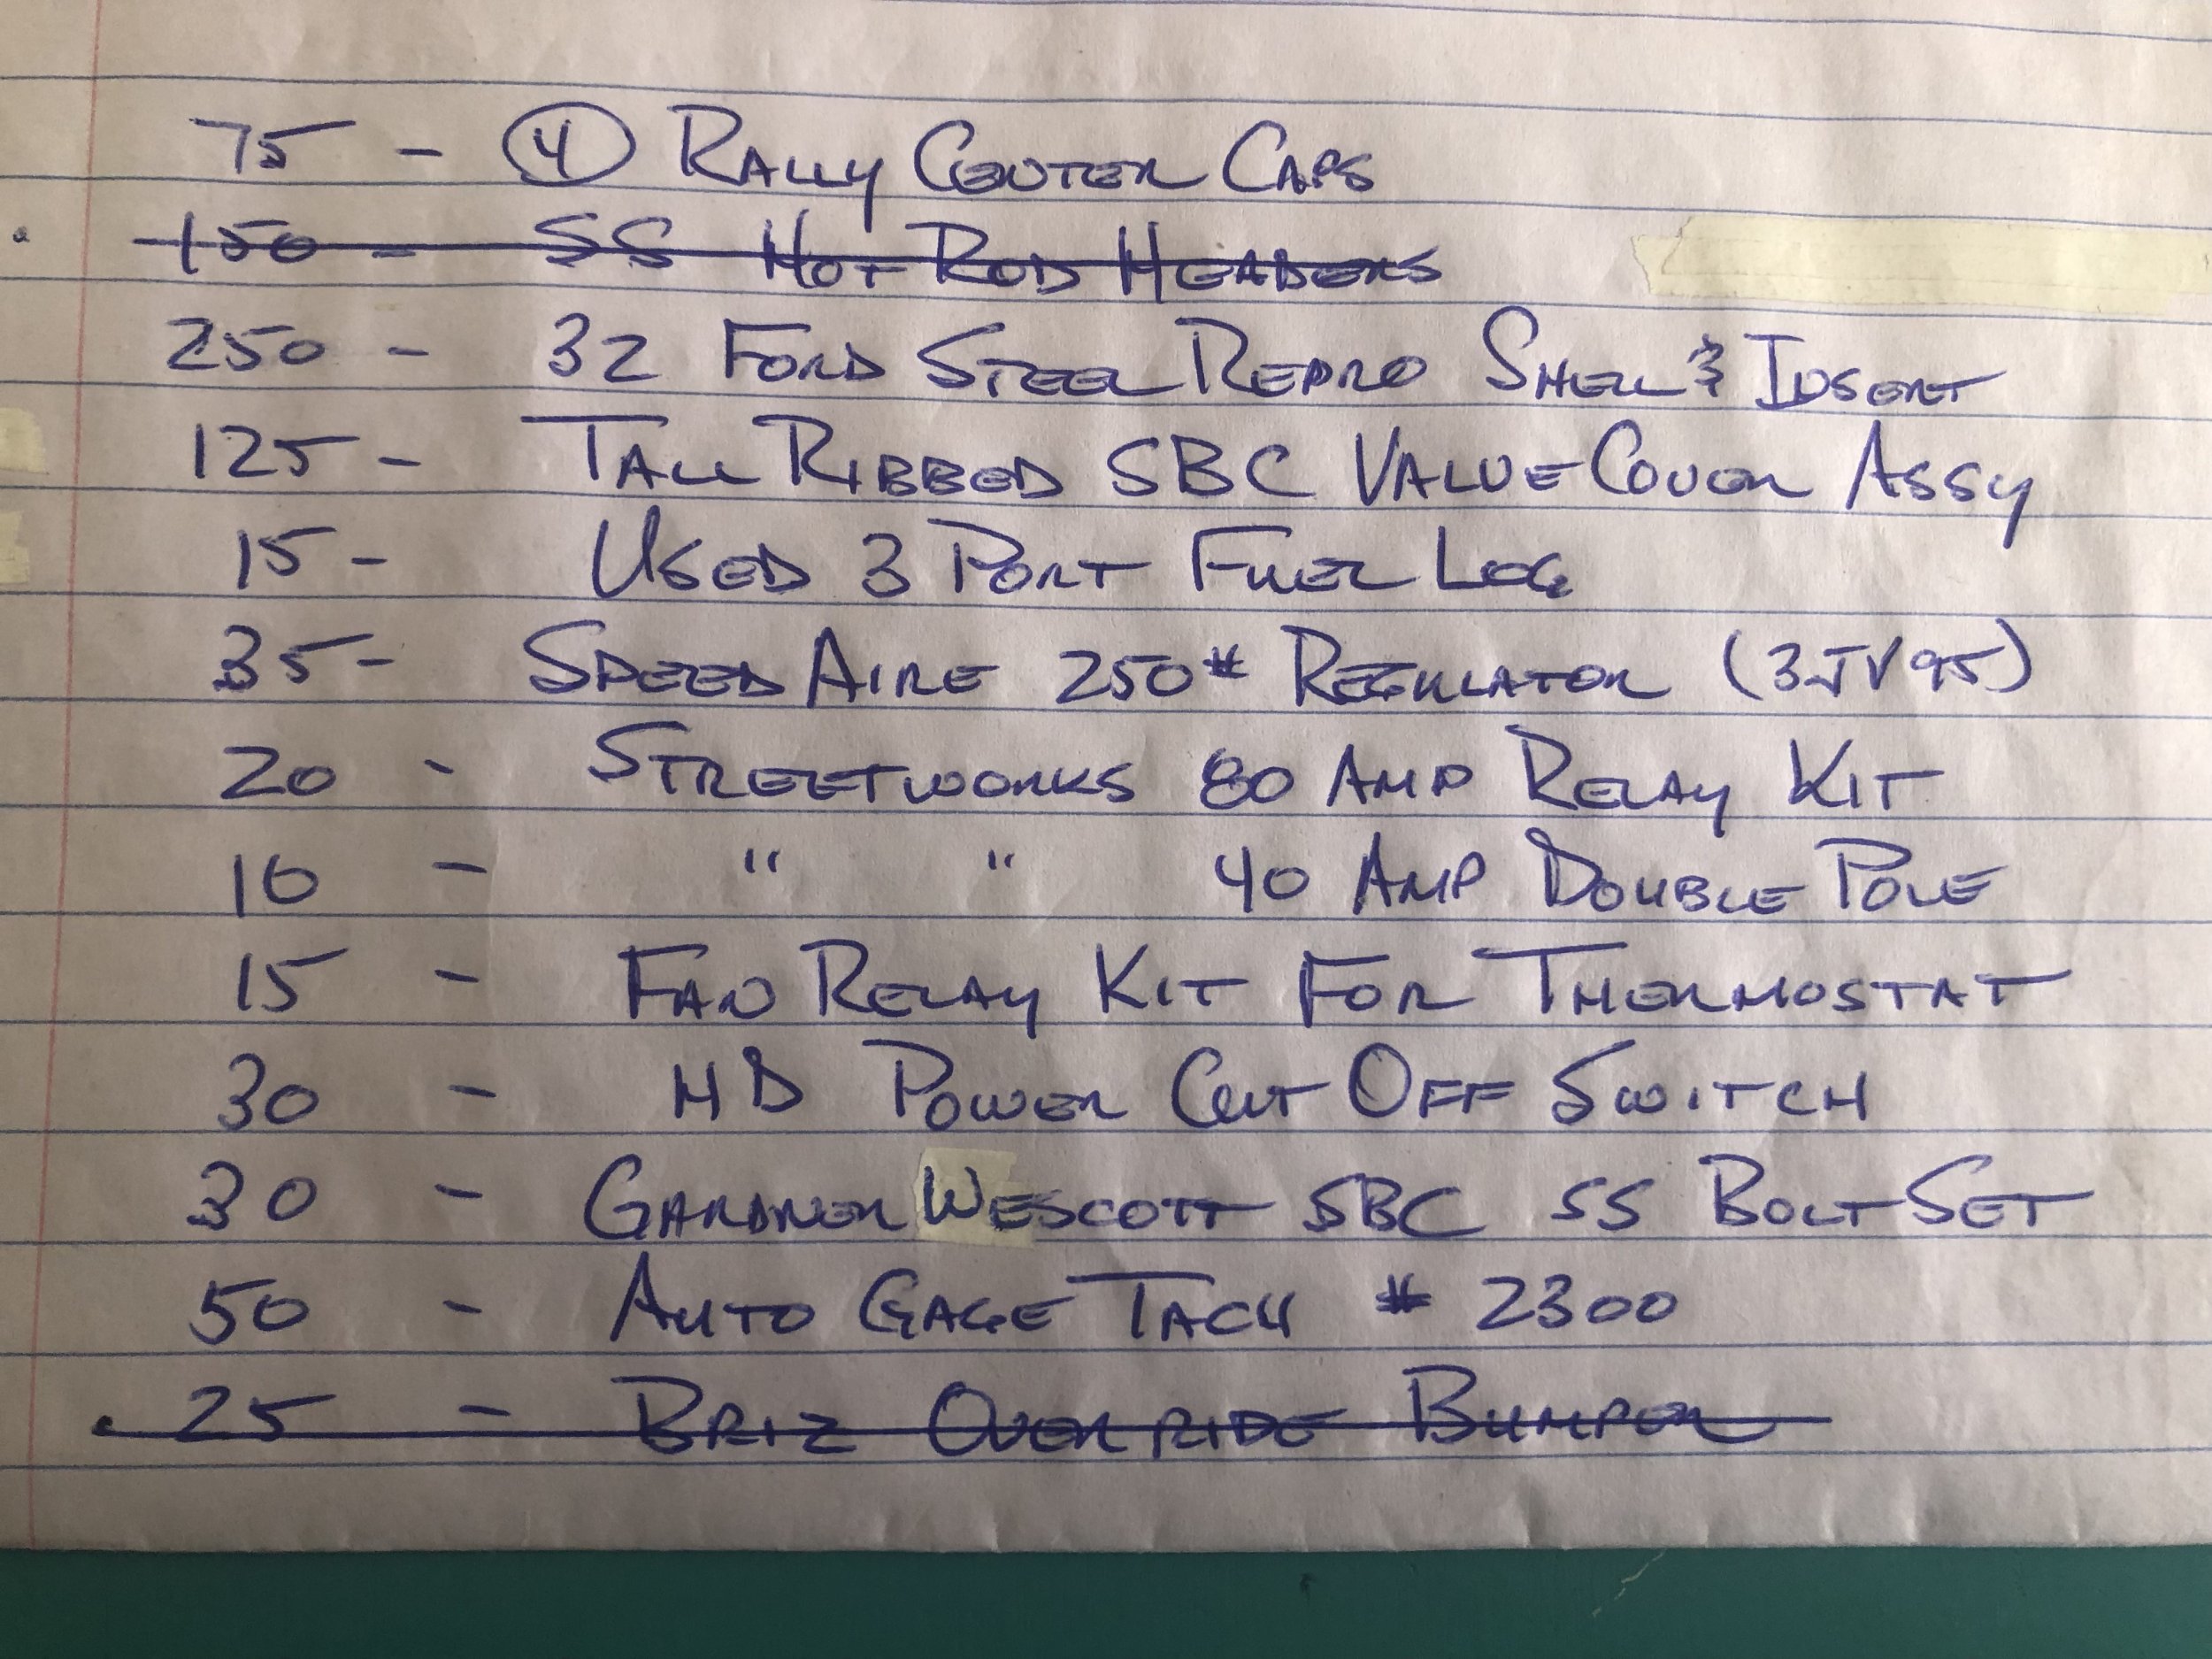 75 - (4) RALLY CENTER CAPS
150 - SS HOT ROD HEADERS
250 - 32 FORD STEEL REPRO SHELL & INSERT
125 - TALL RIBBED SBC VALVE COVER ASSY
15 - USED 3 PORT FUEL LOG
35 - SPEED AIRE 250# REGULATOR (3JV95)
20 - STREETWORKS 80 AMP RELAY KIT
10 - " " 40 AMP DOUBLE POLE
15 - FAN RELAY KIT FOR THERMOSTAT
30 - HD POWER CUT OFF SWITCH
30 - GARDNER WESCOTT SBC SS BOLT SET
50 - AUTO GAGE TACH # 2300
25 - BRIZ OVER RIDE BUMPER